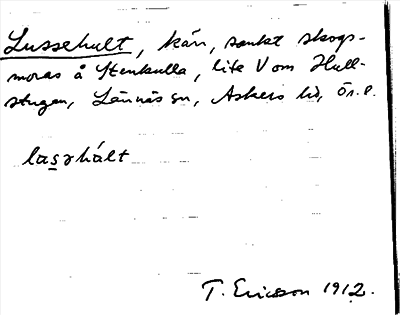 Lussehult, kärr, sankt skogs-
moras å Stenkulla, lite V om Hall-
stugan, Lännäs sn, Askers hd, Ör. l.
lasəhált
T. Ericsson 1912.